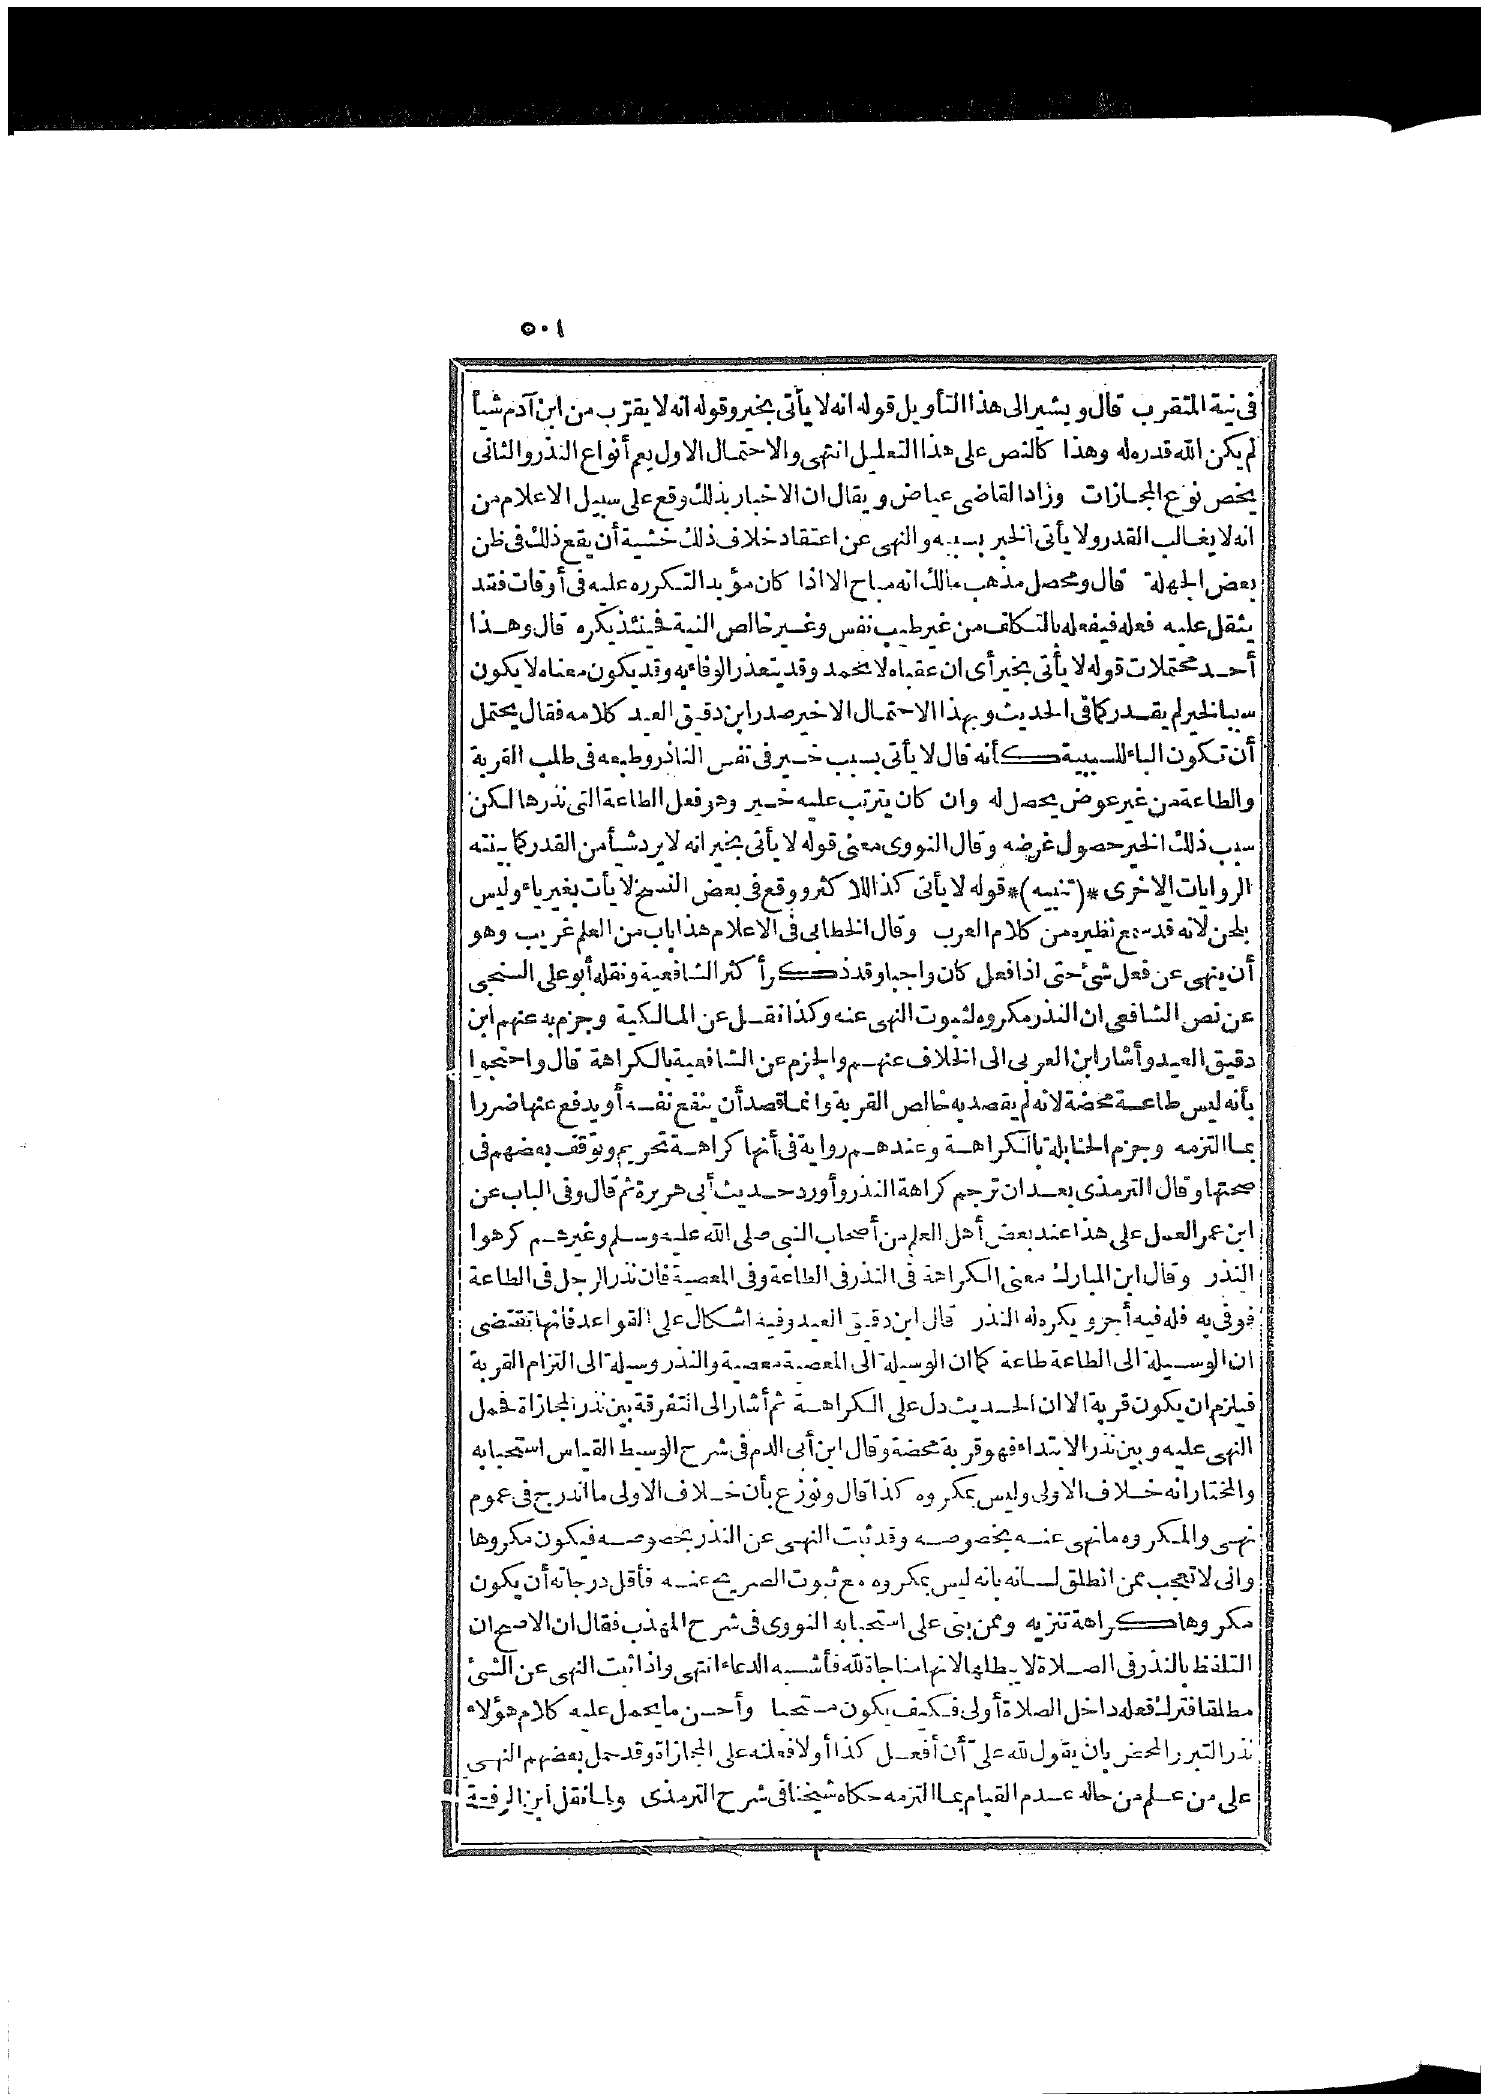 ٥٠١
فى نية المتقرب قال ويشير الى هذا التأويل قوله انه لا يأتى بخير وقوله انه لا يقرّب من ابن آدم شيأ
لم يكن الله قدره له وهذا كالنص على هذا التعليل انتهى والاحتمال الاول يعم أنواع النذر والثانى
يخص نوع المجازات وزاد القاضى عياض ويقال ان الاخبار بذلك وقع على سبيل الاعلام من
انه لا يغالب القدر ولا يأتى الخير بسببه والنهى عن اعتقاد خلاف ذلك خشية أن يقع ذلك فى ظن
بعض الجهلة قال ومحصل مذهب مالك انه مباح الا اذا كان مؤبدا لتكرره عليه فى أوقات فقد
يثقل عليه فعله فيفعله بالتكلف من غير طيب نفس وغير خالص النية فحينئذ يكره قال وهذا
أحد محتملات قوله لا يأتى بخير أى ان عقباه لا تحمد وقد يتعذر الوفاء به وقد يكون معناه لا يكون
سببا لخير لم يقدر كما فى الحديث وبهذا الاحتمال الاخير صدر ابن دقيق العيد كلامه فقال يحتمل
أن تكون الباء للسببية كأنه قال لا يأتى بسبب خير فى نفس الناذر وطبعه فى طلب القربة
والطاعة من غير عوض يحصل له وان كان يترتب عليه خير وهو فعل الطاعة التى نذرها لكن
سبب ذلك الخير حصول غرضه وقال النووى معنى قوله لا يأتى بخير انه لا يرد شيأ من القدر كما بينته
الروايات الاخرى *(تنبيه)* قوله لا يأتى كذا للاكثر ووقع فى بعض النسخ لا يأت بغير ياء وليس
بلحن لانه قد سمع نظيره من كلام العرب وقال الخطابى فى الاعلام هذا باب من العلم غريب وهو
أن ينهى عن فعل شئ حتى اذا فعل كان واجبا وقد ذكر أكثر الشافعية ونقله أبو على السنجى
عن نص الشافعى ان النذر مكروه لثبوت النهى عنه وكذا نقل عن المالكية وجزم به عنهم ابن
دقيق العيد وأشار ابن العربى الى الخلاف عنهم والجزم عن الشافعية بالكراهة قال واحتجوا
بأنه ليس طاعة محضة لانه لم يقصد به خالص القربة وانما قصد أن ينفع نفسه أو يدفع عنها ضررا
بما التزمه وجزم الحنابلة بالكراهة وعندهم رواية فى أنها كراهة تحريم وتوقف بعضهم فى
صحتها وقال الترمذى بعد ان ترجم كراهة النذر وأورد حديث أبى هريرة ثم قال وفى الباب عن
ابن عمر العمل على هذا عند بعض أهل العلم من أصحاب النبى صلى الله عليه وسلم وغيرهم كرهوا
النذر وقال ابن المبارك معنى الكراهة فى النذر فى الطاعة وفى المعصية فان نذر الرجل فى الطاعة
فوفى به فله فيه أجر ويكره له النذر قال ابن دقيق العيد وفيه اشكال على القواعد فانها تقتضى
ان الوسيلة الى الطاعة طاعة كما ان الوسيلة الى المعصية معصية والنذر وسيلة الى التزام القربة
فيلزم ان يكون قربة الا ان الحديث دل على الكراهة ثم أشار الى التفرقة بين نذر المجازاة فحمل
النهى عليه وبين نذر الابتداء فهو قربة محضة وقال ابن أبى الدم فى شرح الوسيط القياس استحبابه
والمختار انه خلاف الاولى وليس بمكروه كذا قال ونوزع بأن خلاف الاولى ما اندرج فى عموم
نهى والمكروه ما نهى عنه بخصوصه وقد ثبت النهى عن النذر بخصوصه فيكون مكروها
وانى لا تعجب ممن انطلق لسانه بانه ليس بمكروه مع ثبوت الصريح عنه فأقل درجاته أن يكون
مكروها كراهة تنزيه وممن بنى على استحبابه النووى فى شرح المهذب فقال ان الاصح ان
التلفظ بالنذر فى الصلاة لا يبطلها لانها مناجاة لله فأشبه الدعاء انتهى واذا ثبت النهى عن الشئ
مطلقا فترك فعله داخل الصلاة أولى فكيف يكون مستحبا وأحسن ما يحمل عليه كلام هؤلاء
نذر التبرر المحض بان يقول لله علىّ أن أفعل كذا أو لا فعلنه على المجازاة وقد حمل بعضهم النهى
على من علم من حاله عدم القيام بما التزمه حكاه شيخنا فى شرح الترمذى ولما نقل ابن الرفعة